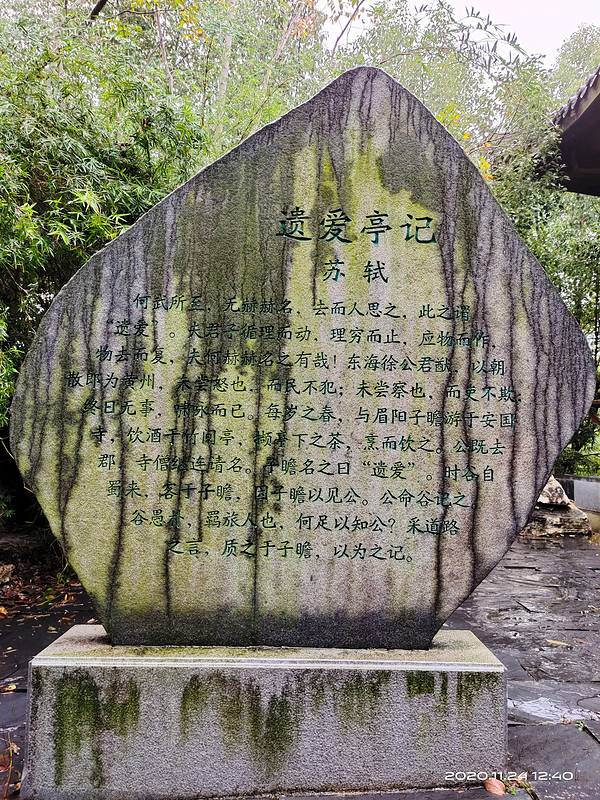 遗爱亭记
苏轼
何武所至，无赫赫名，去而人思之，此之谓
“遗爱”。夫君子循理而动，理穷而止，应物而作，
物去而复，夫何赫赫名之有哉！东海徐公君猷，以朝
散郎为黄州，未尝怒也，而民不犯；未尝察也，而吏不欺；
终日无事，啸咏而已。每岁之春，与眉阳子瞻游于安国
寺，饮酒于竹间亭，撷亭下之茶，烹而饮之。公既去
郡，寺僧继连请名。子瞻名之曰“遗爱”。时谷自
蜀来，客于子瞻，因子瞻以见公。公命谷记之。
谷愚朴，羁旅人也，何足以知公？采道路
之言，质之于子瞻，以为之记。
2020.11.24 12:40